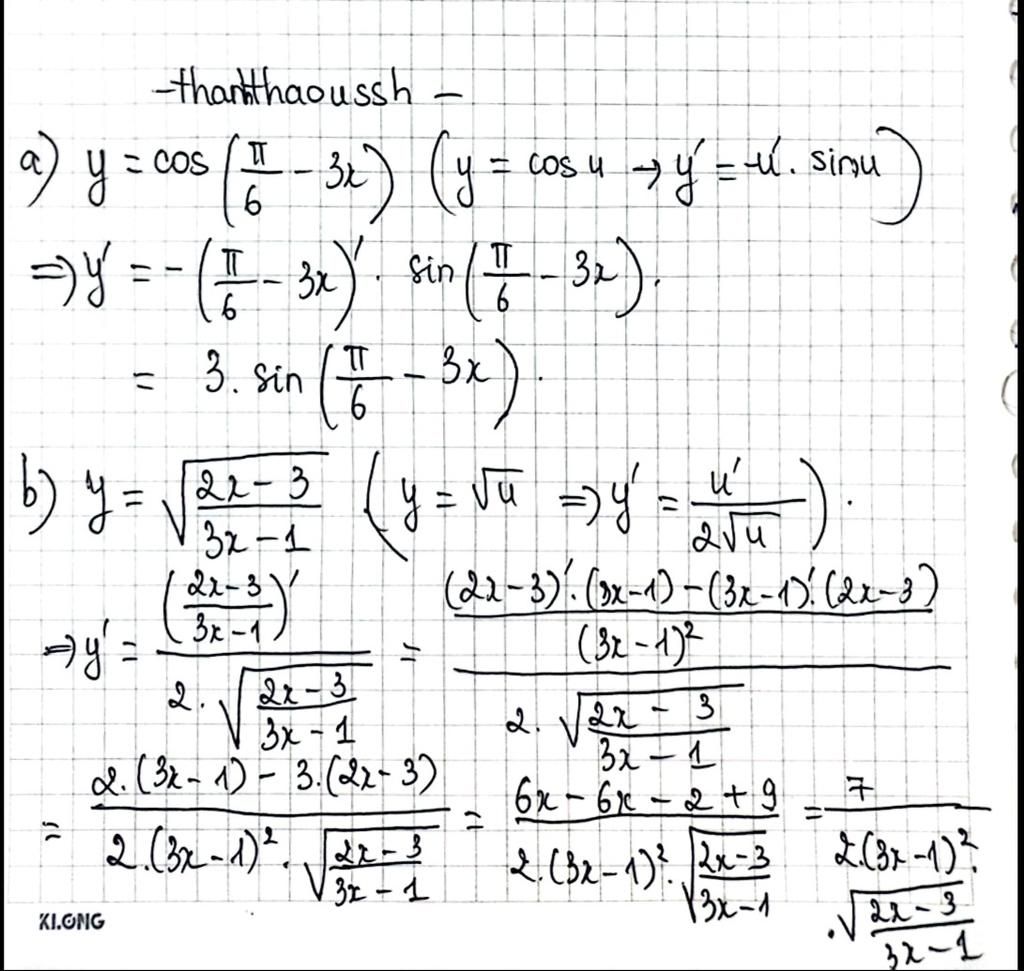 -thanhthaoussh -
a) y = cos (π/6 - 3x) (y = cos u → y' = -u'. sin u)
⇒ y' = - (π/6 - 3x)'. sin (π/6 - 3x).
= 3. sin (π/6 - 3x).
b) y = √((2x - 3)/(3x - 1)) (y = √u ⇒ y' = u'/(2√u)).
⇒ y' = ((2x-3)/(3x-1))' / (2. √((2x-3)/(3x-1))) = (((2x-3)'. (3x-1) - (3x-1)'. (2x-3))/(3x-1)²) / (2. √((2x - 3)/(3x - 1)))
= (2.(3x-1) - 3.(2x-3)) / (2.(3x-1)². √((2x-3)/(3x-1))) = (6x - 6x - 2 + 9) / (2.(3x-1)². √((2x-3)/(3x-1))) = 7 / (2.(3x-1)². . √((2x-3)/(3x-1)))
KLONG